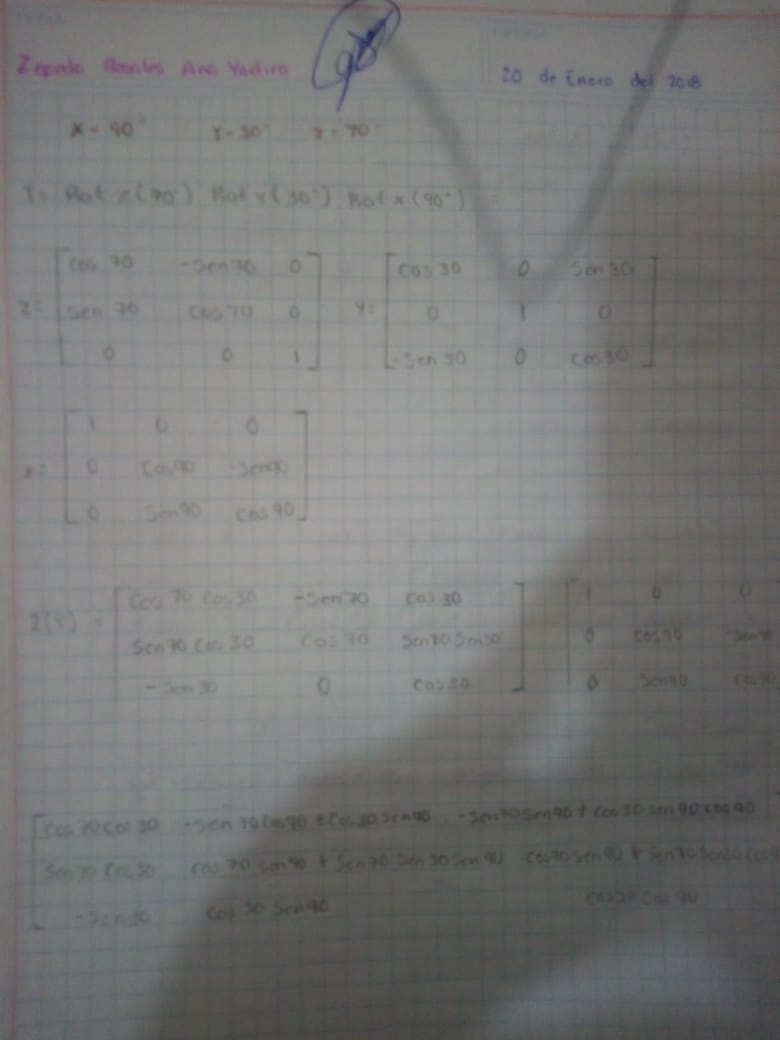 Ana Yadira
20 de Enero del 2018
X = 90° Y = 30° Z = 70°
T = Rot Z(70°) Rot Y(30°) Rot X(90°) =
Z = cos 70 -Sen 70 0 Y = cos 30 0 Sen 30
Sen 70 cos 70 0 0 1 0
0 0 1 -Sen 30 0 cos 30
X = 1 0 0
0 Cos 90 -Sen 90
0 Sen 90 cos 90
Z(Y) = Cos 70 cos 30 -Sen 70 cos 30 1 0 0
Sen 70 cos 30 Cos 70 Sen 70 Sen 30 0 cos 90 -Sen 90
-Sen 30 0 cos 30 0 Sen 90 cos 90
Cos 70 cos 30 -Sen 70 Cos 90 + Cos 30 Sen 90 -Sen 70 Sen 90 + cos 30 sen 90 cos 90
Sen 70 Cos 30 cos 70 sen 90 + Sen 70 Sen 30 Sen 90 -cos 70 sen 90 + Sen 70 Sen 30 Cos 9
-Sen 30 Cos 30 Sen 90 cos 30 Cos 90